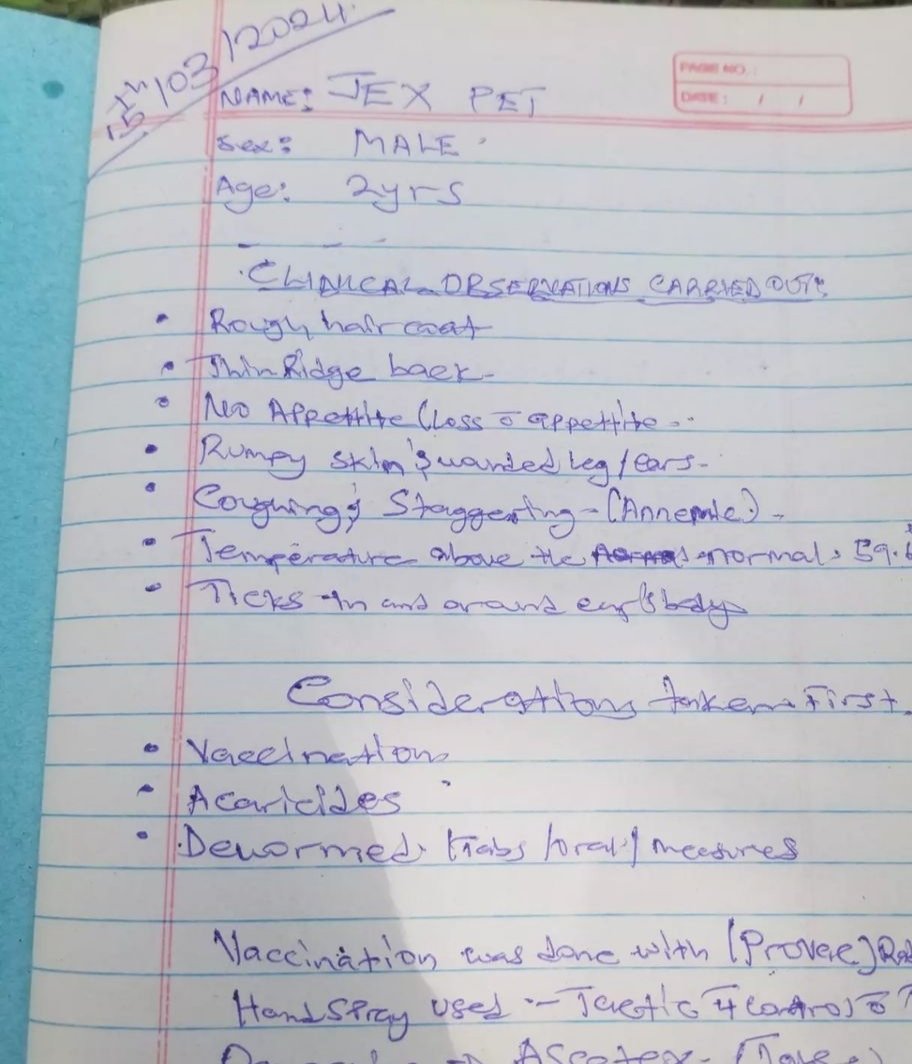 15th/03/2024.
PAGE NO.:
DATE: / /
NAME: JEX PET
Sex: MALE.
Age: 2yrs
CLINICAL OBSERVATIONS CARRIED OUT:
• Rough hair coat
• Thin Ridge back-
• No Appettite (Loss o appettite..
• Rumpy skin & wounded leg/ears-
• Coughing & Staggerting-(Annemic)-
• Temperature above the normal. 39.
• Ticks in and around ear & body
Considerations taken First.
• Vaccination
• Acaricides
• Dewormed. tabs /oral/ measures
Vaccination was done with (Provac)
Hand Spray used :- Tactic control